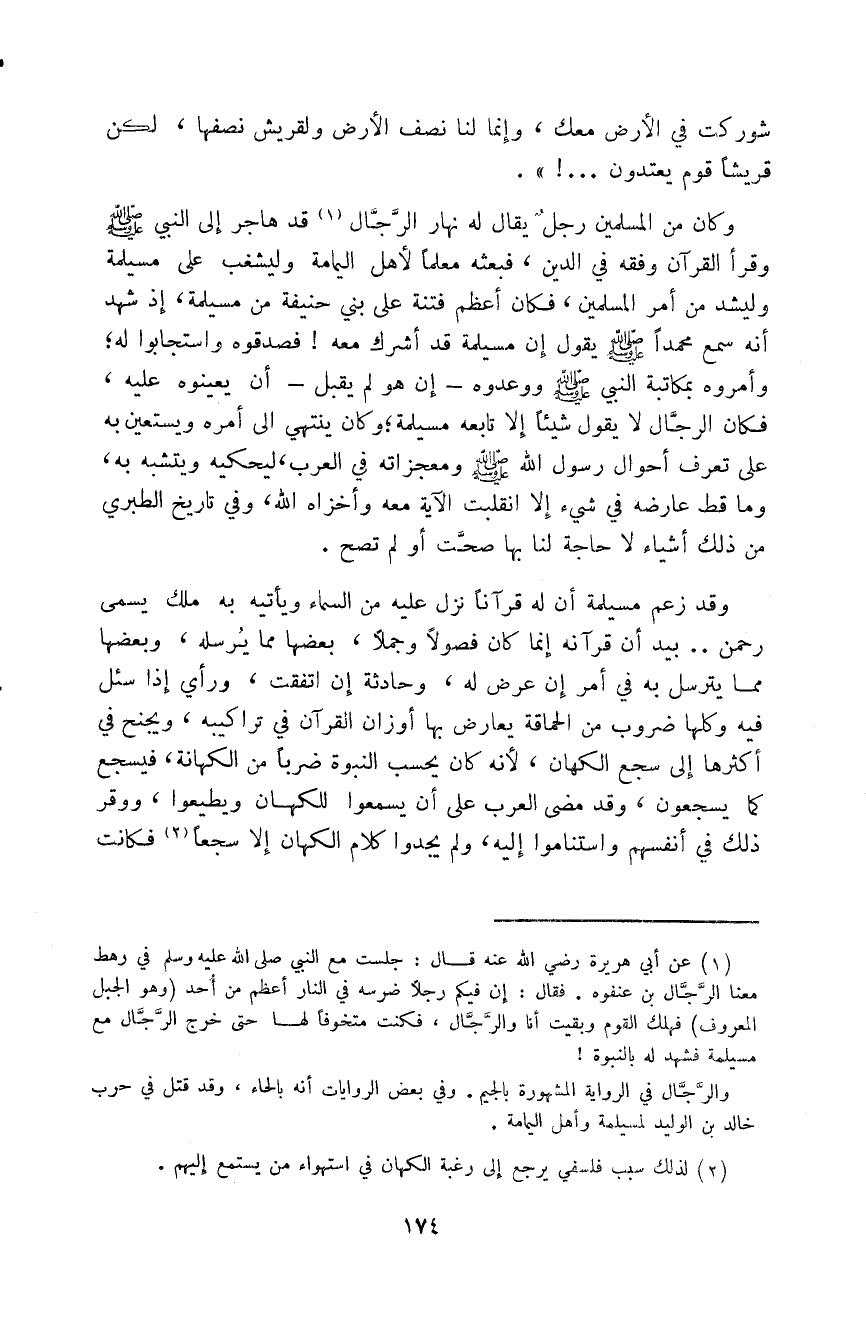 شوركت في الأرض معك ، وإنما لنا نصف الأرض ولقريش نصفها ، لكن
قريشاً قوم يعتدون ...! » .
وكان من المسلمين رجلٌ يقال له نهار الرَّجَّال (١) قد هاجر إلى النبي ﷺ
وقرأ القرآن وفقه في الدين ، فبعثه معلماً لأهل اليامة وليشغب على مسيلمة
وليشد من أمر المسلمين ، فكان أعظم فتنة على بني حنيفة من مسيلمة، إذ شهد
أنه سمع محمداً ﷺ يقول إن مسيلمة قد أشرك معه ! فصدقوه واستجابوا له؛
وأمروه بمكاتبة النبي ﷺ ووعدوه – إن هو لم يقبل – أن يعينوه عليه ،
فكان الرجَّال لا يقول شيئاً إلا تابعه مسيلمة؛ وكان ينتهي الى أمره ويستعين به
على تعرف أحوال رسول الله ﷺ ومعجزاته في العرب، ليحكيه ويتشبه به،
وما قط عارضه في شيء إلا انقلبت الآية معه وأخزاه الله، وفي تاريخ الطبري
من ذلك أشياء لا حاجة لنا بها صحَّت أو لم تصح .
وقد زعم مسيلمة أن له قرآناً نزل عليه من السماء ويأتيه به ملك يسمى
رحمن .. بيد أن قرآنه إنما كان فصولاً وجملاً ، بعضها مما يُرسله ، وبعضها
مما يترسل به في أمر إن عرض له ، وحادثة إن اتفقت ، ورأي إذا سئل
فيه وكلها ضروب من الحماقة يعارض بها أوزان القرآن في تراكيبه ، ويجنح في
أكثرها إلى سجع الكهان ، لأنه كان يحسب النبوة ضرباً من الكهانة، فيسجع
كما يسجعون ، وقد مضى العرب على أن يسمعوا للكهان ويطيعوا ، ووقر
ذلك في أنفسهم واستناموا إليه، ولم يجدوا كلام الكهان إلا سجعاً (٢) فكانت
(١) عن أبي هريرة رضي الله عنه قال : جلست مع النبي صلى الله عليه وسلم في رهط
معنا الرَّجَّال بن عنفوه . فقال : إن فيكم رجلاً ضرسه في النار أعظم من أُحد (وهو الجبل
المعروف) فهلك القوم وبقيت أنا والرَّجَّال ، فكنت متخوفاً لها حتى خرج الرَّجَّال مع
مسيلمة فشهد له بالنبوة !
والرَّجَّال في الرواية المشهورة بالجيم . وفي بعض الروايات أنه بالحاء ، وقد قتل في حرب
خالد بن الوليد لمسيلمة وأهل اليامة .
(٢) لذلك سبب فلسفي يرجع إلى رغبة الكهان في استهواء من يستمع إليهم .
١٧٤